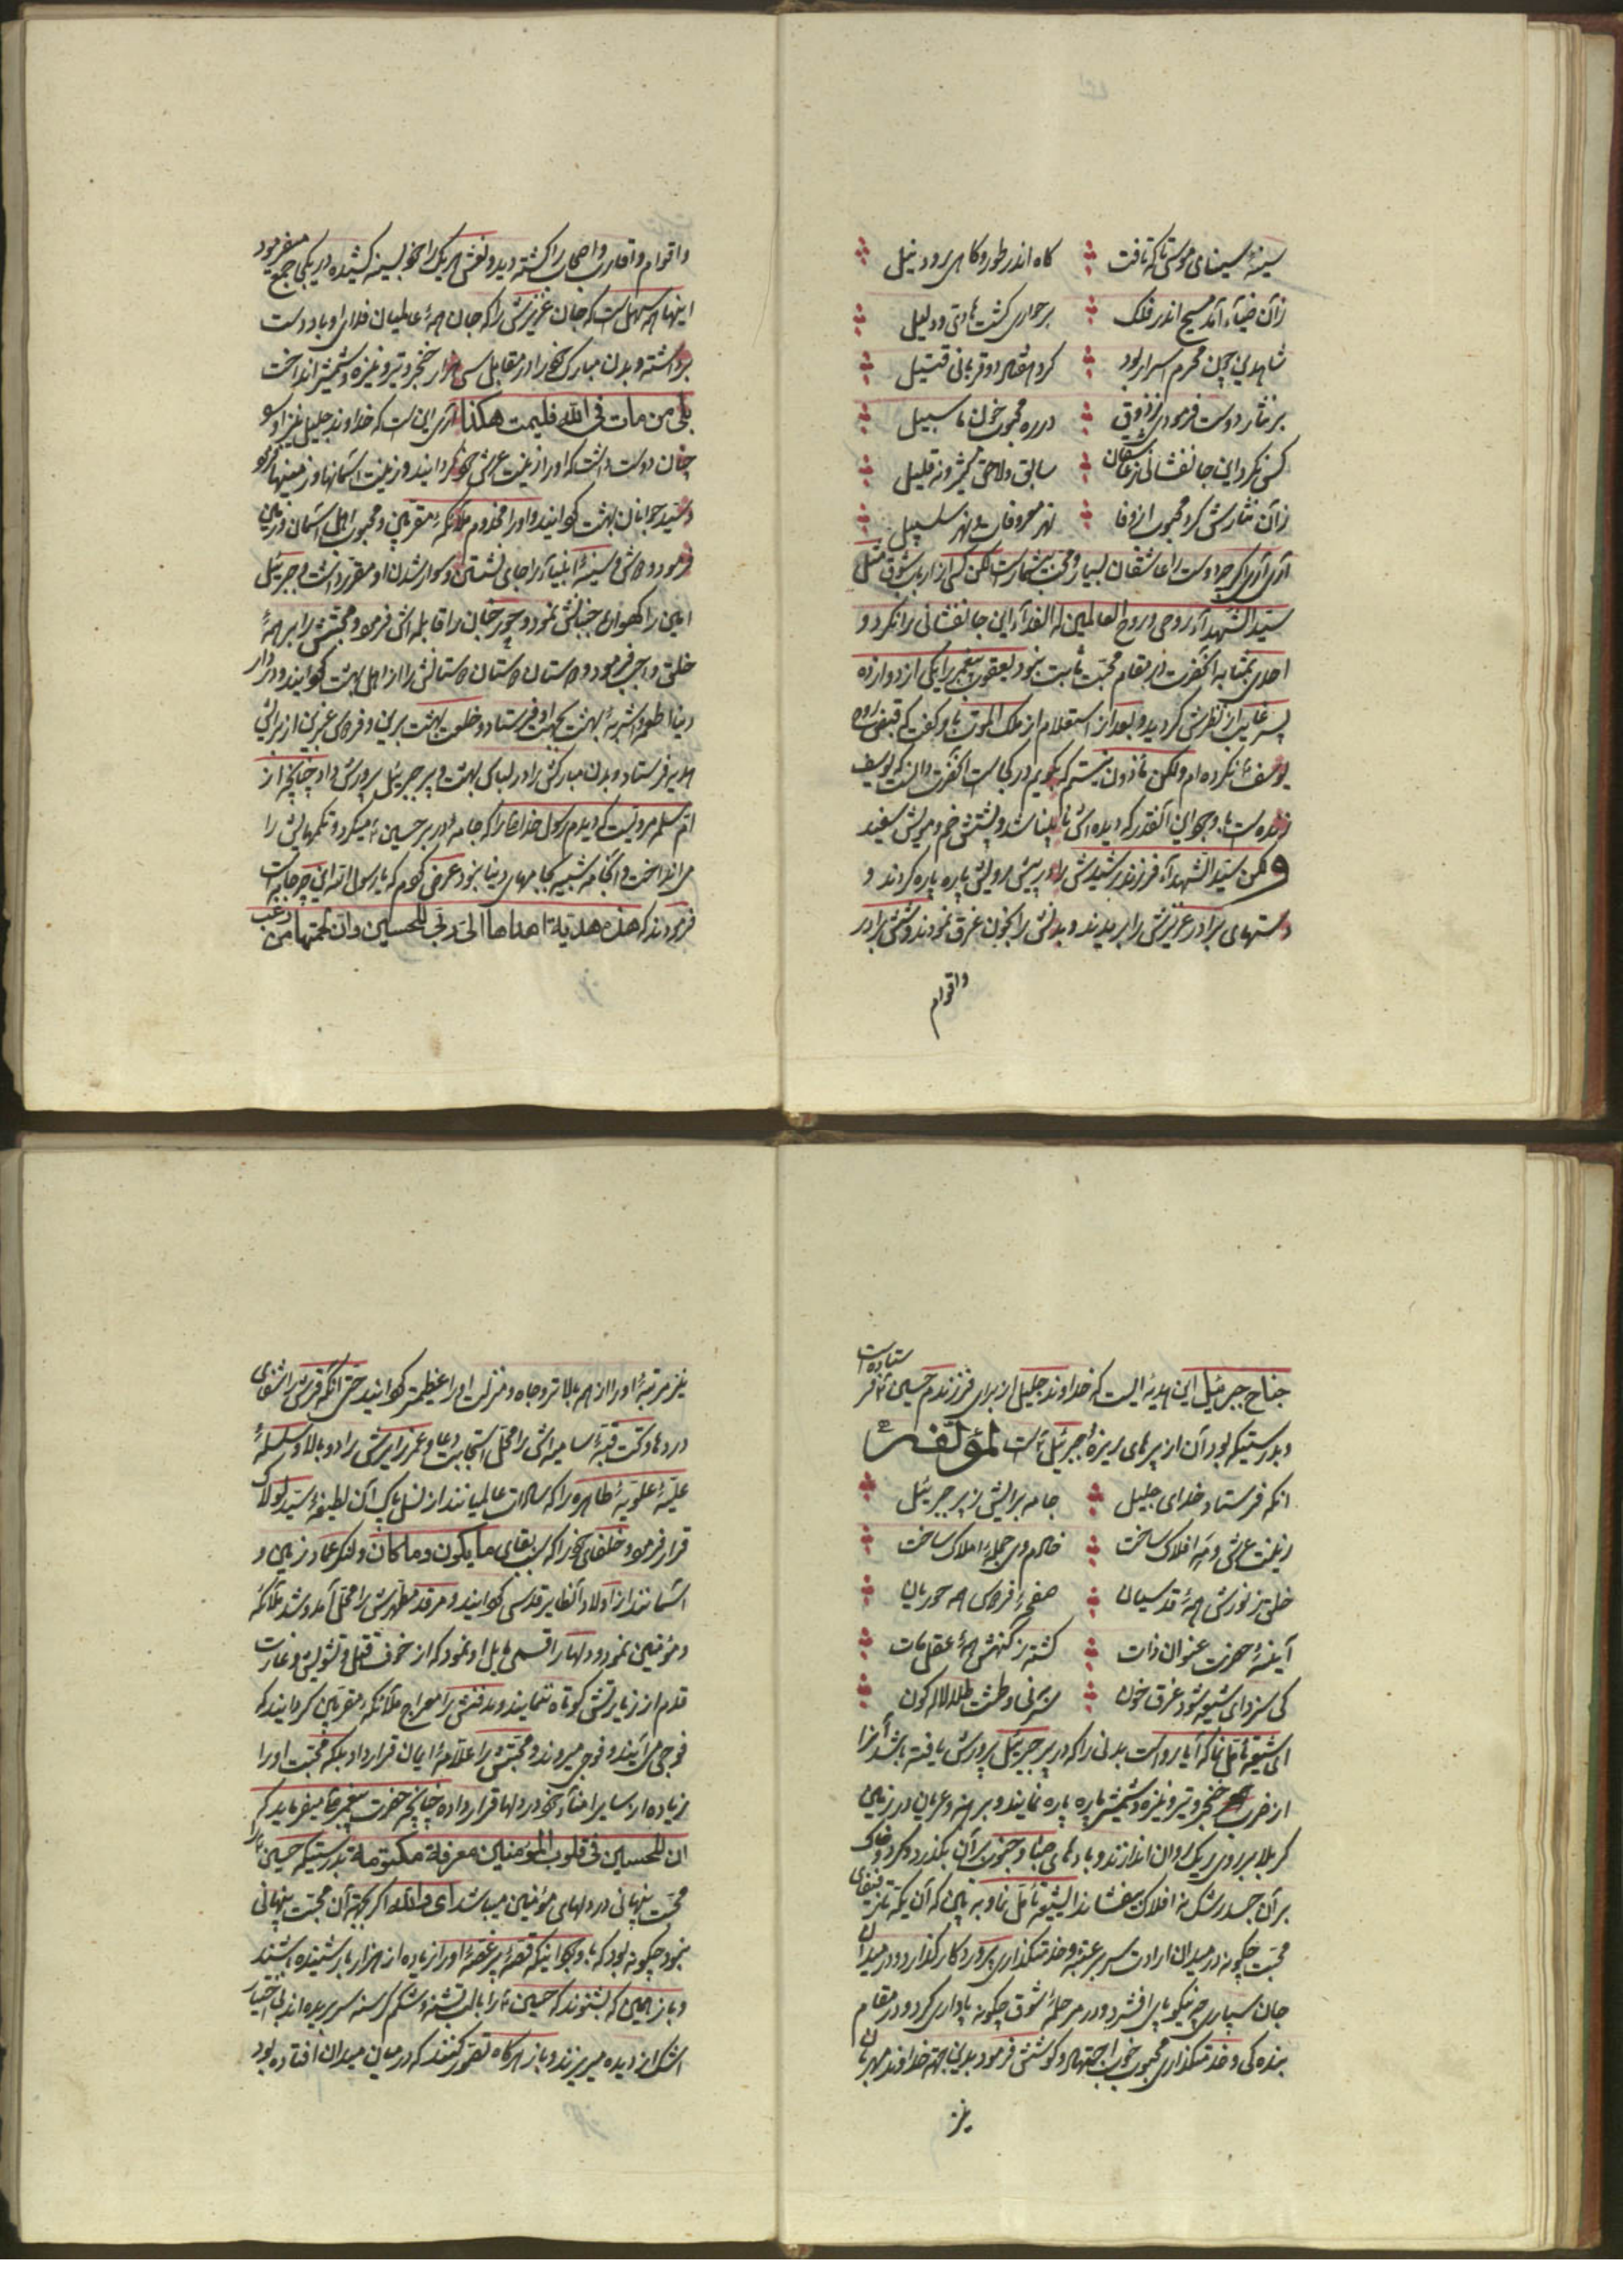 سینهٔ سینای موسی تا که تافت کاه اندر طور و کاهی رود نیل
زان ضیاء آمد مسیح اندر فلک بر حواری گشت هادی و دلیل
شاهدی چون محرم اسرار بود کرد هفتاد و دو قربانی قتیل
بر نثار دوست فرمود از ذوق در ره محبوب خون ها سبیل
کس نکرد این جانفشانی از عاشقان سابق و لاحق کثیر و نه قلیل
زان نثارش کرد محبوب از وفا نهر معروفات و نهر سلسبیل
آری آری اگر چه دوست را عاشقان بسیار و محب بیشمار است لکن کسی از ارباب شوق مثل
سید الشهدآء روحی و روح العالمین له الفدآء این جانفشانی را نکرد و
احدی بمثابه آنحضرت در مقام محبت ثابت نبود یعقوب پیغمبر را یکی از دوازده
پسر غایب از نظرش گردید و بعد از استعلام از ملک الموت باو گفت که قبض روح
یوسف را نکرده‌ام ولکن ماذون نیستم که بگویم در کجاست آنحضرت دانست که یوسف
زنده است با وجود این آنقدر که دیده‌اش نابینا شد و پشتش خم و مویش سفید
ولکن سید الشهدآء فرزند رشیدش را در پیش رویش پاره پاره کردند و
دستهای برادر عزیزش را بریدند و بدنش را بخون غرق نمودند و شش برادر
واقوام
واقوام و اقارب و اصحاب را کشته دید و نعش هر یک را خود بسینه کشیده در یکی جمع میفرمود
اینها همه سهل است که جان عزیزش را که جان همهٔ عالمیان فدای او باد دست
برداشته و بدن مبارک خود را در مقابل سی هزار خنجر و تیر و نیزه و شمشیر انداخت
بلی من مات فی الله فلیمت هکذا آری این است که خداوند جلیل نیز او را
چنان دوست داشت که او را زینت عرش خود گردانید و زینت آسمانها و زمینها نمود
و سید جوانان بهشت گردانید و او را مخدوم ملائکه مقربین و محبوب اهل آسمان و زمین
فرمود و دوش و سینهٔ انبیآء را جای نشستن و سوار شدن او مقرر داشت و جبرئیل
امین را گهواره جنبانش نمود و حور جنان را قابله‌اش فرمود و محبتش را بر همهٔ
خلق واجب فرمود و دوستان دوستان دوستانش را از اهل بهشت گردانید و در دار
دنیا اطعمه و اشربهٔ بهشت بجهت او فرستاد و خلعت بهشت برین و فردوس عنبرین از برایش
هدیه فرستاد و بدن مبارکش را در لباس بهشت و پر جبرئیل پرورش داد چنانچه از
ام سلمه مرویست که دیدم رسول خدا را که جامه در بر حسین میکرد و تکمهایش را
می انداخت و آنجامه شبیه بجامهای دنیا نبود عرض کردم که یا رسول الله این چه جامه است
فرمودند که هذه هدیة اهداها الی ربی للحسین و ان لحمتها من زغب
جناح جبرئیل این هدیهٔ ایست که خداوند جلیل از برای فرزندم حسین فرستاده است
و بدرستیکه پود آن از پرهای ریزهٔ جبرئیل است لمؤلفه
آنکه فرستاد خدای جلیل جامه برایش ز پر جبرئیل
زینت عرش و نه افلاک ساخت خادم وی جملهٔ املاک ساخت
خلق ز نورش همهٔ قدسیان صفحهٔ فردوس همه حوریان
آینهٔ حضرت عنوان ذات گشته ز کنهش همهٔ عقل مات
کی سزد ای شیعه شود غرق خون سر بر نی و طشت طلا لاله گون
ای شیعه تأمل نما که آیا رواست بدنی را که در پر جبرئیل پرورش یافته باشد آنرا
از ضرب خنجر و تیر و نیزه و شمشیر پاره پاره نمایند و برهنه و عریان در زمین
کربلا بر روی ریک روان اندازند و بادهای صبا و جنوب بر آن بگذرد و گرد و خاک
بر آن جسد رشک نه افلاک بیفشاند ایشیعه تأمل نما و به بین که آن یکه تاز
محبت چگونه در میدان ارادت سیر عتبهٔ و خدمتگذاری پروردگار گذارد و در میدان
جان سپاری چه نیکو پای افشرد و در مرحلهٔ شوق چگونه پاداری کرد و در مقام
بندگی و خدمتگذاری محبوب خود اجتهاد و کوشش فرمود بدین جهة خداوند مهربان
نیز
نیز مرتبهٔ او را از همه بالاتر و جاه و منزلت او را عظیمتر گردانید حتی آنکه قبرش را شفای
دردها و تحت قبهٔ سامیه‌اش را محل استجابت دعا و عمر زایرش را دو بالا و سلسلهٔ
علیهٔ علویهٔ طاهره را که سادات عالمیانند از نسل پاک آن لطیفهٔ سید لولاک
قرار فرمود و خلفای خود را که سبب بقای ما یکون و ما کان و لنگر عماد زمین و
آسمانند از اولاد اطایب قدسی گردانید و مرقد مطهرش را محل آمد و شد ملائکه
و مؤمنین نمود و دلها را قسمی مایل او نمود که از خوف قتل و تشویش و غارت
قدم از زیارتش کوتاه ننمایند و مدفنش را معراج ملائکه مقربین گردانید که
فوجی می آیند و فوجی میروند و محبتش را علامهٔ ایمان قرار داد بلکه محبت او را
زیاده از سایر امنآء خود در دلها قرار داده چنانچه حضرت پیغمبر میفرماید که
ان للحسین فی قلوب المؤمنین معرفة مکتومة بدرستیکه حسین را
محبت پنهانی در دلهای مؤمنین میباشد ای والله اگر بجهة آن محبت پنهانی
نبود چگونه بود که با وجود اینکه قصهٔ پر غصهٔ او را زیاده از هزار بار شنیده باشند
و باز همین که بشنوند که حسین را با لب تشنه و شکم گرسنه سر بریده‌اند بی اختیار
اشک از دیده میریزند و باز هرگاه تصور کنند که در میان میدان افتاده بود